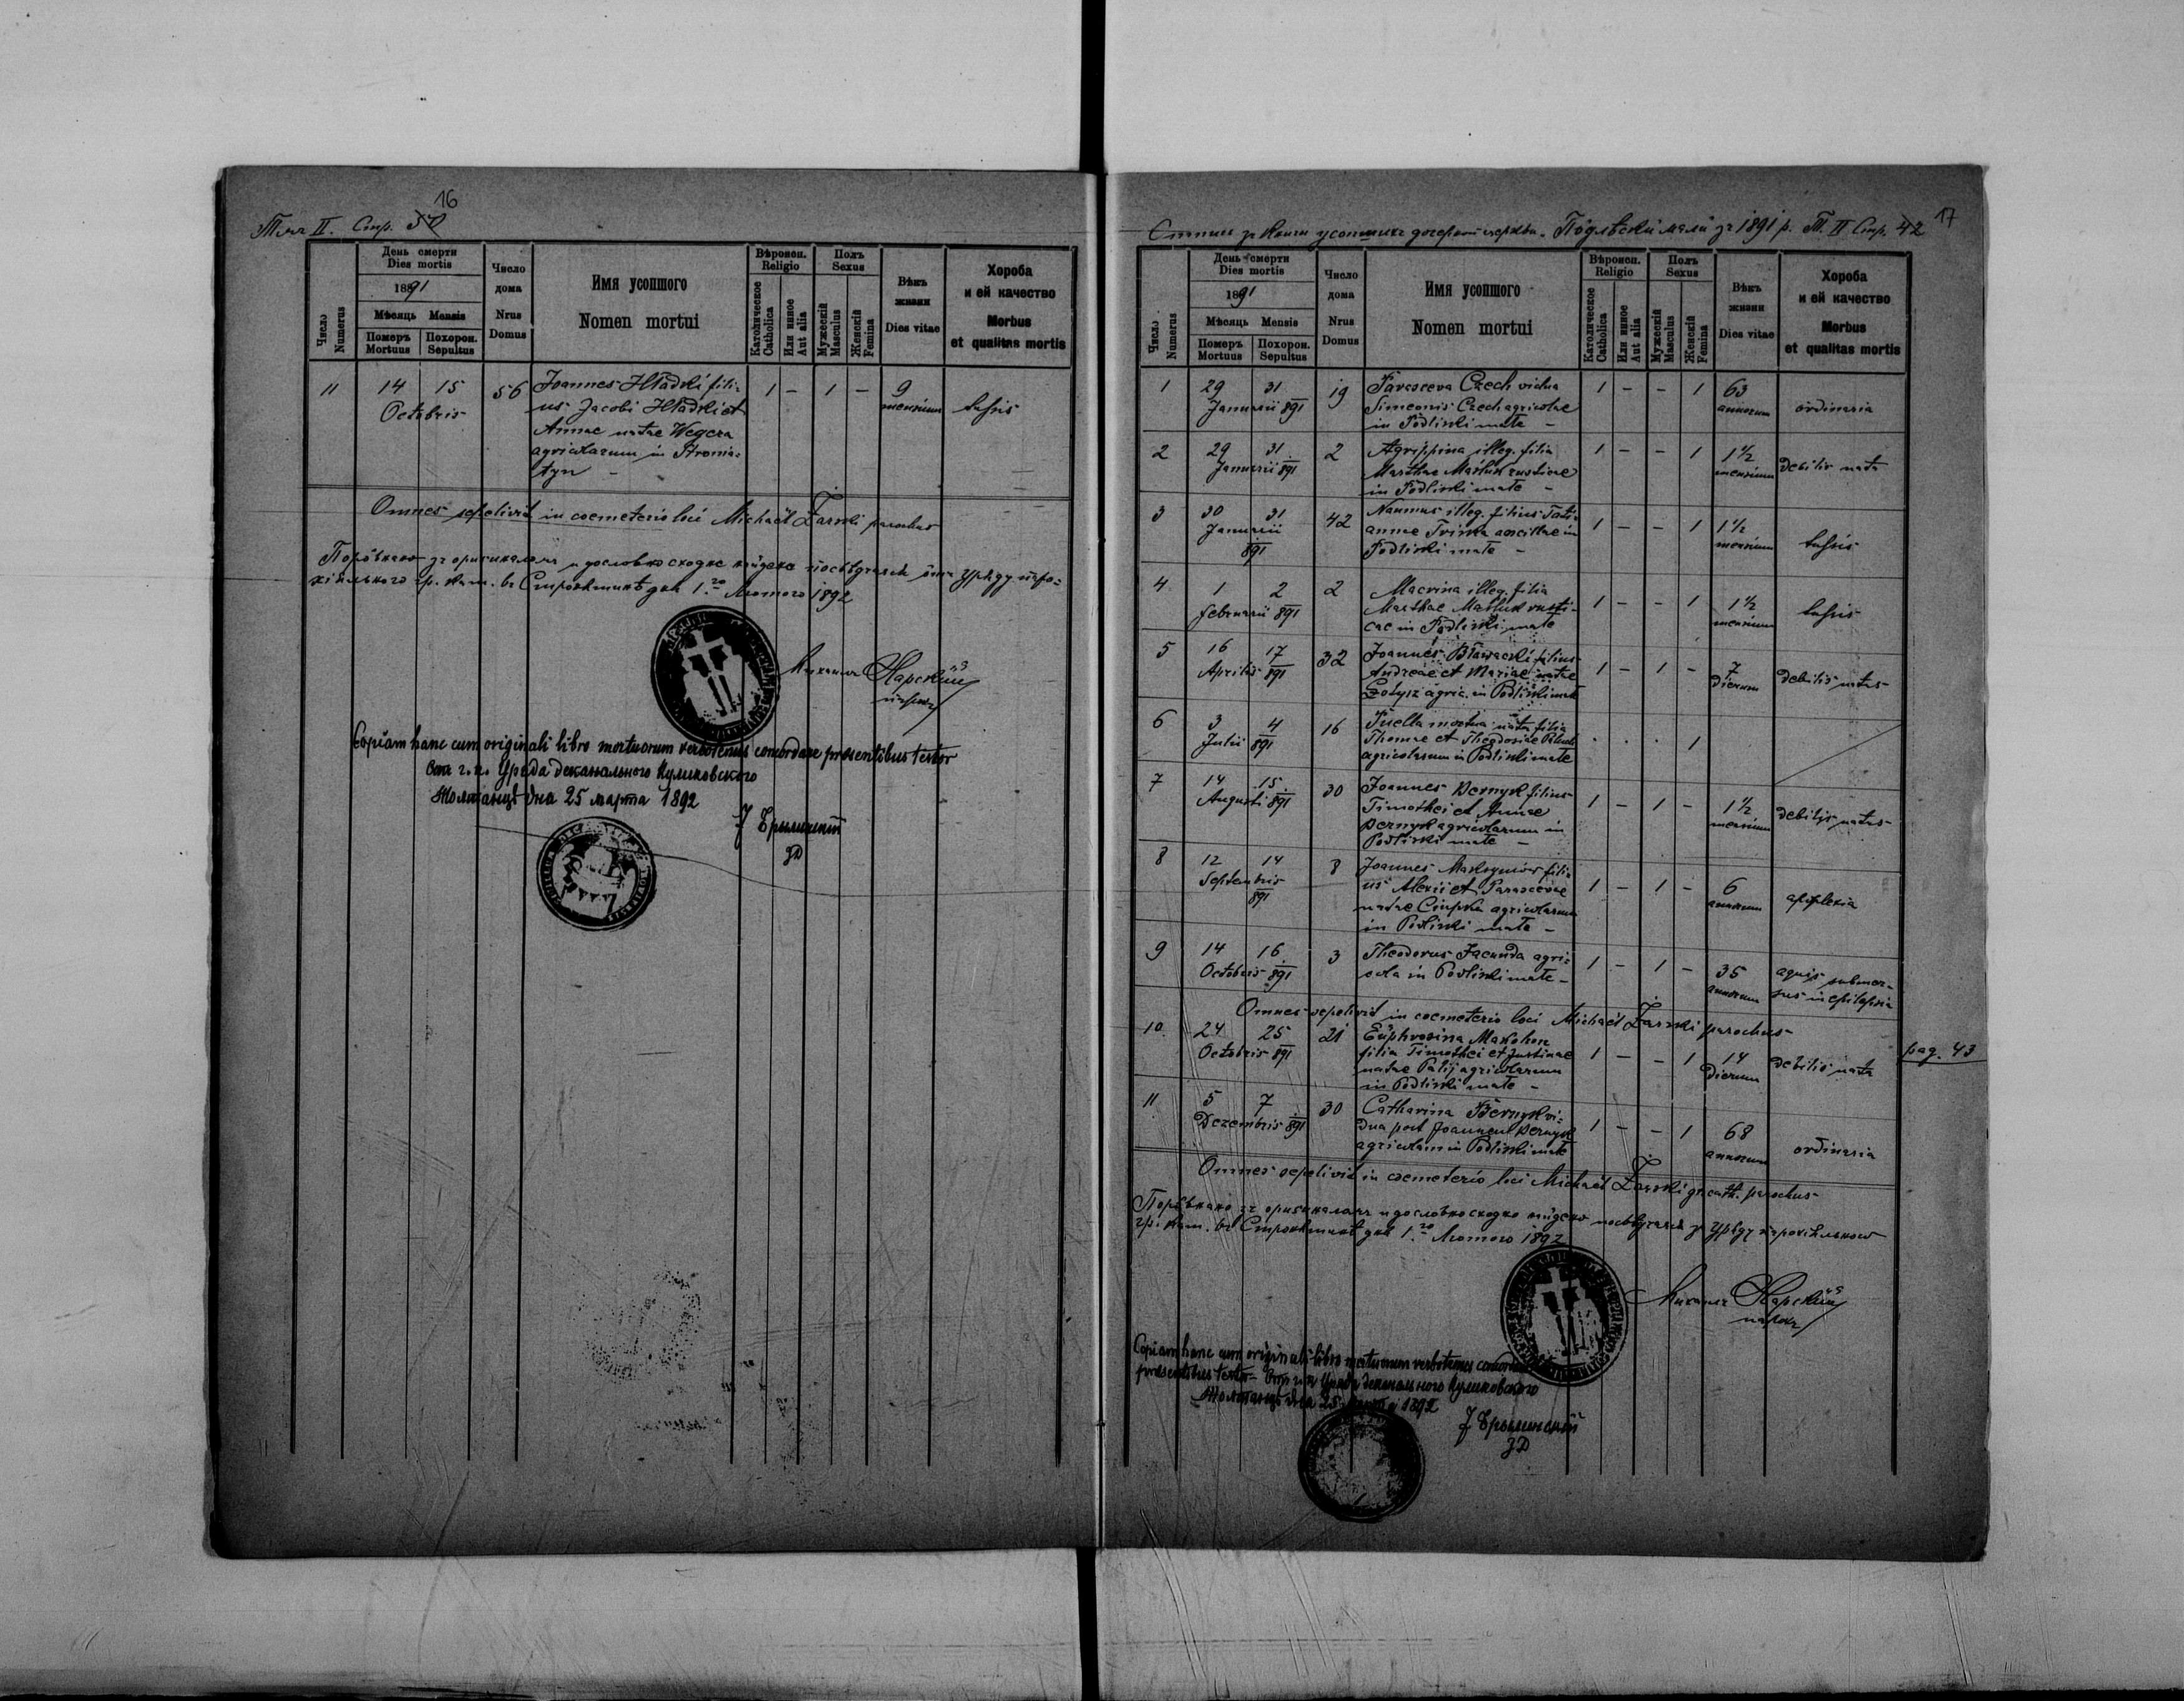 16
Томъ II. Стр.
Число
Numerus
День смерти
Dies mortis
1891
Мѣсяць Mensis
Померъ
Mortuus
Похорон.
Sepultus
Число
дома
Nrus
Domus
Имя усопшого
Nomen mortui
Вѣроисп.
Religio
Католическое
Catholica
Или иное
Aut alia
Полъ
Sexus
Мужескій
Masculus
Женскій
Femina
Вѣкъ
жизни
Dies vitae
Хороба
и ей качество
Morbus
et qualitas mortis
11 14 15 56 Joannes Hładki fili-
Octobris us Jacobi Hładki et 1 - 1 - 9 tussis
Annae natae Wegera mensium
agricolarum in Stronia-
tyn -
Omnes sepelivit in coemeterio loci Michaël Żarski parochus
гр. кат. въ дня 1.го Лютого 1892
Михаилъ Жарскій
парох
Copiam hanc cum originali libro mortuorum verbotenus concordare praesentibus testor
Отъ г. к. Уряда деканального Куликовского
Жолтанцѣ дня 25 марта 1892
17
за 1891 р. Т. II Стр. 42
Число
Numerus
День смерти
Dies mortis
1891
Мѣсяць Mensis
Померъ
Mortuus
Похорон.
Sepultus
Число
дома
Nrus
Domus
Имя усопшого
Nomen mortui
Вѣроисп.
Religio
Католическое
Catholica
Или иное
Aut alia
Полъ
Sexus
Мужескій
Masculus
Женскій
Femina
Вѣкъ
жизни
Dies vitae
Хороба
и ей качество
Morbus
et qualitas mortis
1 29 31 19 Parasceva Czech vidua 1 - - 1 63
Januarii 891 Simeonis Czech agricolae annorum ordinaria
in Podliski małe -
2 29 31 2 Agrippina illeg. filia 1 - - 1 1½
Januarii 891 Marthae rusticae mensium debilis nata
in Podliski małe -
3 30 31 42 Naumus illeg. filius Tati-
Januarii annae ancillae in 1 - - 1 1½
891 Podliski małe - mensium tussis
4 1 2 2 Macrina illeg. filia
Februarii 891 Marthae rusti- 1 - - 1 1½ tussis
cae in Podliski małe mensium
5 16 17 32 Joannes filius
Aprilis 891 Andreae et Mariae natae 1 - 1 - 7 debilis natus
agric. in Podliski małe dierum
6 3 4 16 Puella mortua nata filia
Julii 891 Thomae et Theodosiae . . . 1
agricolarum in Podliski małe
7 14 15 30 Joannes Bernyk filius
Augusti 891 Timothei et Annae 1 - 1 - 1½ debilis natus
Bernyk agricolarum in mensium
Podliski małe -
8 12 14 8 Joannes Maksymów fili-
Septembris us Alexii et Parascevae 1 - 1 - 6 apoplexia
891 natae agricolarum annorum
in Podliski małe -
9 14 16 3 Theodorus Jacunda agri-
Octobris 891 cola in Podliski małe - 1 - 1 - 35 aquis submer-
annorum sus in epilepsia
Omnes sepelivit in coemeterio loci Michaël Żarski parochus
10 24 25 21 Euphrosina
Octobris 891 filia Timothei et Justinae 1 - - 1 14 debilis nata pag. 43
natae Palij agricolarum dierum
in Podliski małe -
11 5 7 30 Catharina Bernyk vi-
Dezembris 891 dua post Joannem Bernyk 1 - - 1 68
agricolam in Podliski małe annorum ordinaria
Omnes sepelivit in coemeterio loci Michaël Żarski gr. cath. parochus
гр. кат. въ дня 1.го Лютого 1892
Михаилъ Жарскій
парох
Copiam hanc cum originali libro mortuorum verbotenus
praesentibus testor - Уряда деканального Куликовского
Жолтанцѣ дня 25 1892